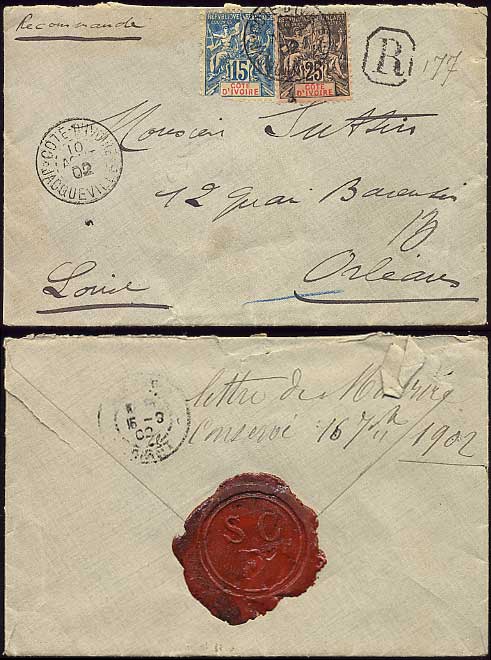 Recommandé
RÉPUBLIQUE FRANÇAISE
15
COTE D'IVOIRE
RÉPUBLIQUE FRANÇAISE
25
COTE D'IVOIRE
R
177
COTE D'IVOIRE
10
02
JACQUEVILLE
Monsieur
12 Quai
Orléans
Loiret
lettre de
16 1902
15 - 9
02
S C